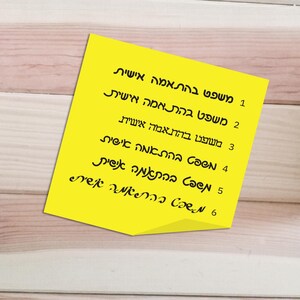 משפט בהתאמה אישית 1
משפט בהתאמה אישית 2
משפט בהתאמה אישית 3
משפט בהתאמה אישית 4
משפט בהתאמה אישית 5
משפט בהתאמה אישית 6